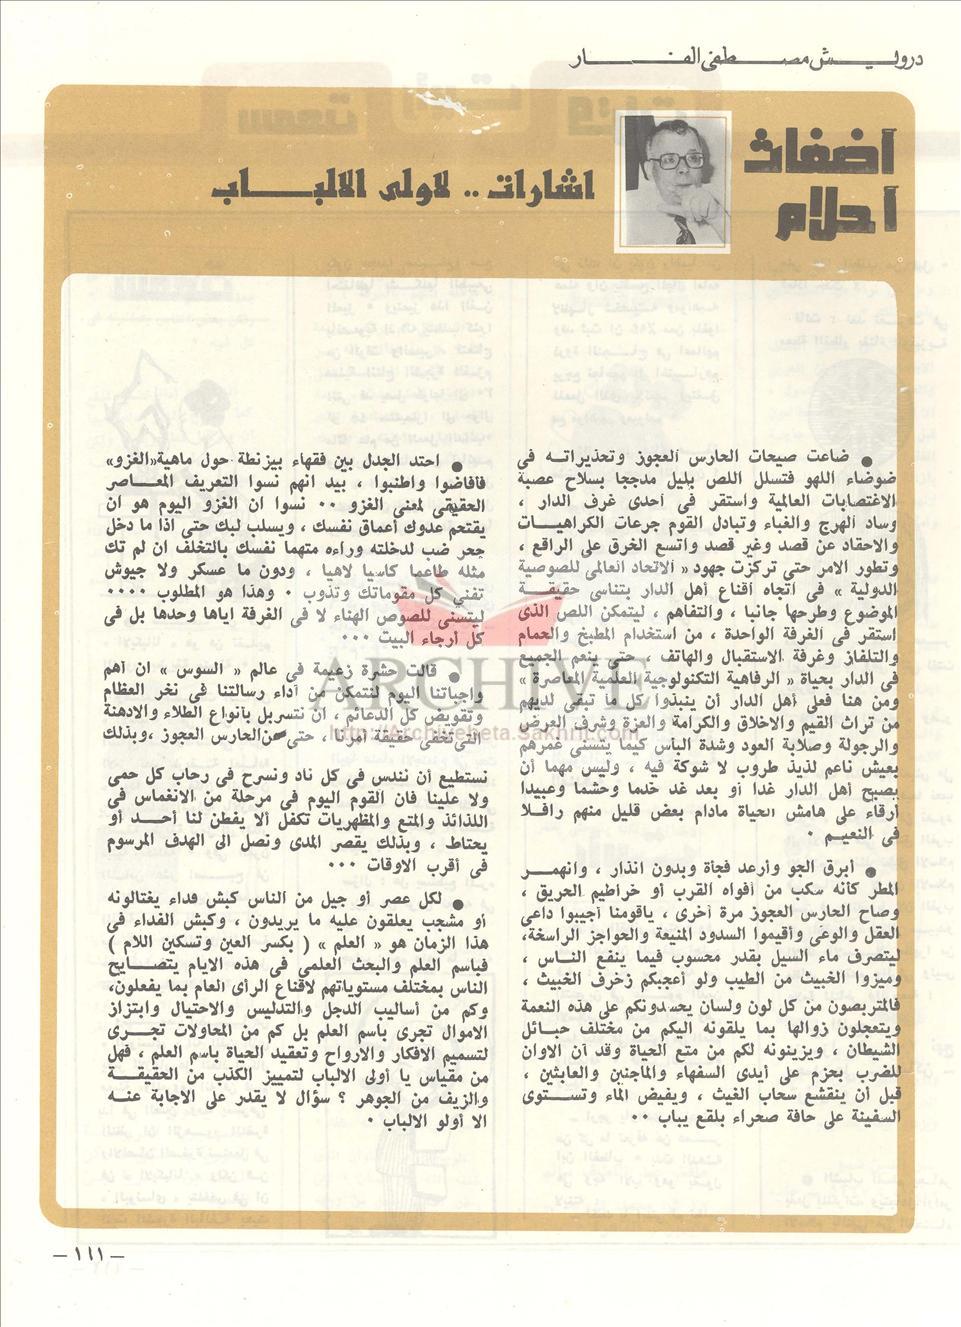 درويش مصطفى الفار
أضغاث
أحلام
اشارات .. لاولى الالباب
● ضاعت صيحات الحارس العجوز وتحذيراته فى
ضوضاء اللهو فتسلل اللص بليل مدججا بسلاح عصبة
الاغتصابات العالمية واستقر فى أحدى غرف الدار ،
وساد الهرج والغباء وتبادل القوم جرعات الكراهيات
والاحقاد عن قصد وغير قصد واتسع الخرق على الراقع ،
وتطور الامر حتى تركزت جهود « الاتحاد العالمى للصوصية
الدولية » فى اتجاه أقناع أهل الدار بتناسى حقيقة
الموضوع وطرحها جانبا ، والتفاهم ، ليتمكن اللص الذى
استقر فى الغرفة الواحدة ، من استخدام المطبخ والحمام
والتلفاز وغرفة الاستقبال والهاتف ، حتى ينعم الجميع
فى الدار بحياة « الرفاهية التكنولوجية العلمية المعاصرة »
ومن هنا فعلى أهل الدار أن ينبذوا كل ما تبقى لديهم
من تراث القيم والاخلاق والكرامة والعزة وشرف العرض
والرجولة وصلابة العود وشدة البأس كيما يتسنى غمرهم
بعيش ناعم لذيذ طروب لا شوكة فيه ، وليس مهما أن
يصبح أهل الدار غدا أو بعد غد خدما وحشما وعبيدا
أرقاء على هامش الحياة مادام بعض قليل منهم رافلا
فى النعيم ٠
● أبرق الجو وأرعد فجأة وبدون انذار ، وانهمر
المطر كأنه سكب من أفواه القرب أو خراطيم الحريق ،
وصاح الحارس العجوز مرة أخرى ، ياقومنا أجيبوا داعى
العقل والوعى وأقيموا السدود المنيعة والحواجز الراسخة،
ليتصرف ماء السيل بقدر محسوب فيما ينفع الناس ،
وميزوا الخبيث من الطيب ولو أعجبكم زخرف الخبيث ،
فالمتربصون من كل لون ولسان يحسدونكم على هذه النعمة
ويتعجلون زوالها بما يلقونه اليكم من مختلف حبائل
الشيطان ، ويزينونه لكم من متع الحياة وقد آن الاوان
للضرب بحزم على أيدى السفهاء والماجنين والعابثين ،
قبل أن ينقشع سحاب الغيث ، ويفيض الماء وتستوى
السفينة على حافة صحراء بلقع يباب ٠٠
● احتد الجدل بين فقهاء بيزنطة حول ماهية«الغزو»
فافاضوا واطنبوا ، بيد انهم نسوا التعريف المعاصر
الحقيقى لمعنى الغزو ٠٠ نسوا ان الغزو اليوم هو ان
يقتحم عدوك أعماق نفسك ، ويسلب لبك حتى اذا ما دخل
جحر ضب لدخلته وراءه متهما نفسك بالتخلف ان لم تك
مثله طاعما كاسيا لاهيا ، ودون ما عسكر ولا جيوش
تفنى كل مقوماتك وتذوب ٠ وهذا هو المطلوب ٠٠٠٠
ليتسنى للصوص الهناء لا فى الغرفة اياها وحدها بل فى
كل أرجاء البيت ٠٠٠
● قالت حشرة زعيمة فى عالم « السوس » ان أهم
واجباتنا اليوم لنتمكن من أداء رسالتنا فى نخر العظام
وتقويض كل الدعائم ، ان نتسربل بأنواع الطلاء والادهنة
التى تخفى حقيقة امرنا ، حتى عن الحارس العجوز ، وبذلك
نستطيع أن نندس فى كل ناد ونسرح فى رحاب كل حمى
ولا علينا فان القوم اليوم فى مرحلة من الانغماس فى
اللذائذ والمتع والمظهريات تكفل ألا يفطن لنا أحد أو
يحتاط ، وبذلك يقصر المدى ونصل الى الهدف المرسوم
فى أقرب الاوقات ٠٠٠
● لكل عصر أو جيل من الناس كبش فداء يغتالونه
أو مشجب يعلقون عليه ما يريدون ، وكبش الفداء فى
هذا الزمان هو « العلم » ( بكسر العين وتسكين اللام )
فباسم العلم والبحث العلمى فى هذه الايام يتصايح
الناس بمختلف مستوياتهم لاقناع الرأى العام بما يفعلون،
وكم من أساليب الدجل والتدليس والاحتيال وابتزاز
الاموال تجرى باسم العلم بل كم من المحاولات تجرى
لتسميم الافكار والارواح وتعقيد الحياة باسم العلم ، فهل
من مقياس يا أولى الالباب لتمييز الكذب من الحقيقة
والزيف من الجوهر ؟ سؤال لا يقدر على الاجابة عنه
الا أولو الالباب ٠
ARCHIVE
http://Archivebeta.Sakhrit.com
— ١١١ —